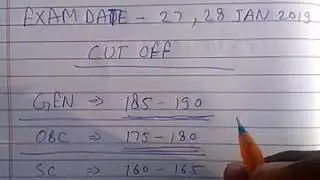 EXAM DATE - 27, 28 JAN 2019
CUT OFF
GEN ⇒ 185 - 190
OBC ⇒ 175 - 180
SC ⇒ 160 - 165